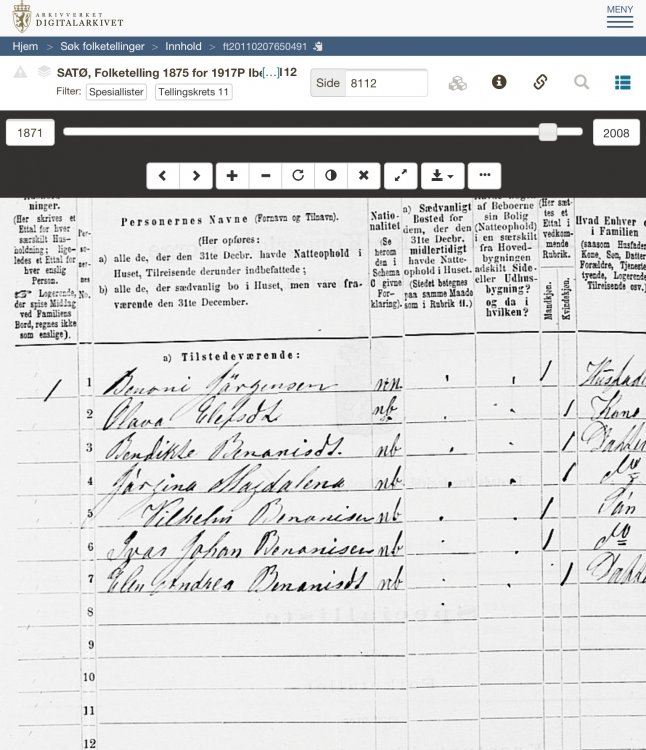 ARKIVVERKET
DIGITALARKIVET
MENY
Hjem > Søk folketellinger > Innhold > ft20110207650491
SATØ, Folketelling 1875 for 1917P Ibe[...] I12
Filter: Spesiallister Tellingskrets 11
Side 8112
1871
2008
ninger.
(Her skrives et
Ettal for hver
særskilt Hus-
holdning; lige-
ledes et Ettal for
hver enslig
Person.
☞ Logerende,
der spise Middag
ved Familiens
Bord, regnes ikke
som enslige).
Per-
so-
ner-
nes
No.
Personernes Navne (Fornavn og Tilnavn).
(Her opføres:
a) alle de, der den 31te Decbr. havde Natteophold i
Huset, Tilreisende derunder indbefattede;
b) alle de, der sædvanlig bo i Huset, men vare fra-
værende den 31te December.
Natio-
nalitet
(Se
herom
den i
Schema
C givne
For-
klaring).
a) Sædvanligt
Bosted for
dem, der den
31te Decbr.
midlertidigt
havde Natte-
ophold i Huset.
(Stedet betegnes
paa samme Maade
som i Rubrik 11.)
af Beboerne
sin Bolig
(Natteophold)
i en særskilt
fra Hoved-
bygningen
adskilt Side-
eller Udhus-
bygning?
og da i
hvilken?
(Her sæt-
tes et
Ettal i
vedkom-
mende
Rubrik.
Mandkjøn.
Kvindekjøn.
Hvad Enhver e
i Familien
(saasom Husfader
Kone, Søn, Datter
Forældre, Tjeneste
tyende, Logerende
Tilreisende osv.)
a) Tilstedeværende:
1 1 Benoni Jörgensen nn 1 Husfade
2 Olava Elefsdt nb 1 Kone
3 Bendikte Benonisdt. nb 1 Datter
4 Jörgina Magdalena nb 1 do
5 Vilhelm Benonisen nb 1 Sön
6 Ivar Johan Benonisen nb 1 do
7 Elen Andrea Benonisdt nb 1 Datte
8
9
10
11
12